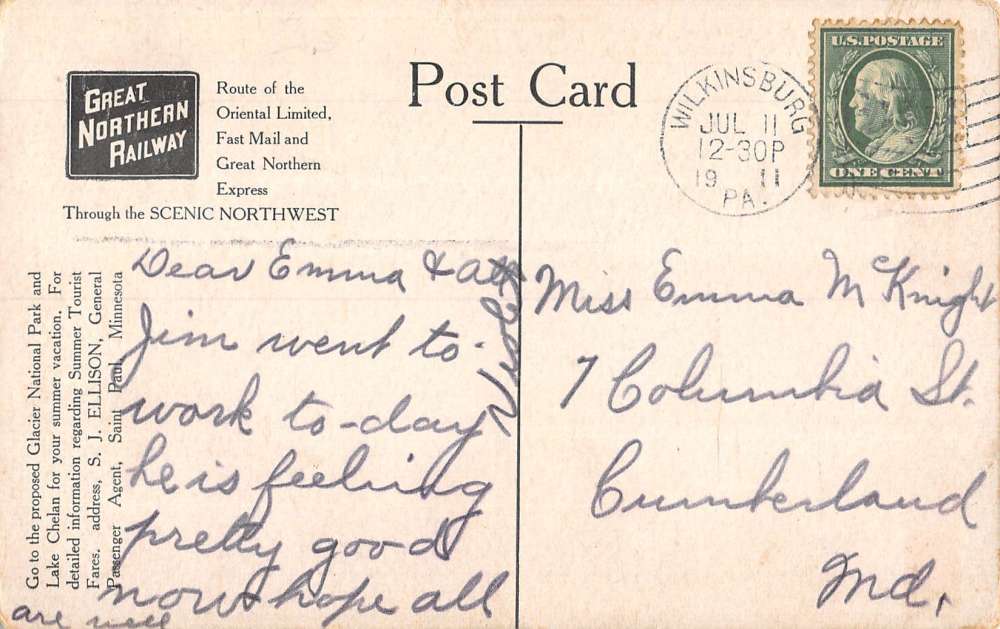 GREAT
NORTHERN
RAILWAY
Route of the
Oriental Limited,
Fast Mail and
Great Northern
Express
Through the SCENIC NORTHWEST
Post Card
WILKINSBURG
JUL 11
12-30P
19 11
PA.
U.S. POSTAGE
ONE CENT
Go to the proposed Glacier National Park and
Lake Chelan for your summer vacation. For
detailed information regarding Summer Tourist
Fares. address, S. J. ELLISON, General
Passenger Agent, Saint Paul, Minnesota
Dear Emma & all
Jim went to
work to-day
he is feeling
pretty good
now hope all
are well
Miss Emma McKnight
7 Columbia St.
Cumberland
Md.